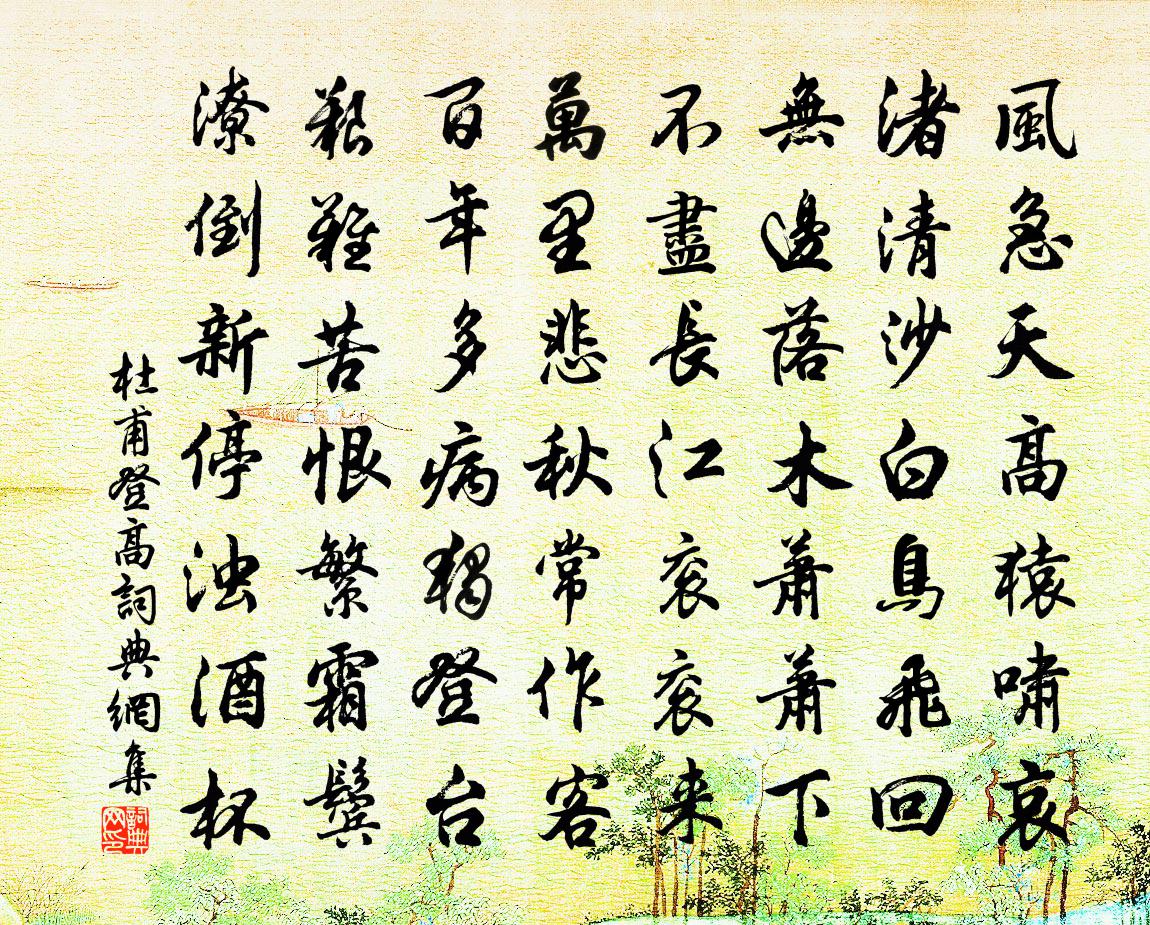 風急天高猿嘯哀
渚清沙白鳥飛回
無邊落木蕭蕭下
不盡長江衮衮来
萬里悲秋常作客
百年多病獨登台
艱難苦恨繁霜鬢
潦倒新停浊酒杯
杜甫登高詞典網集
詞典网印